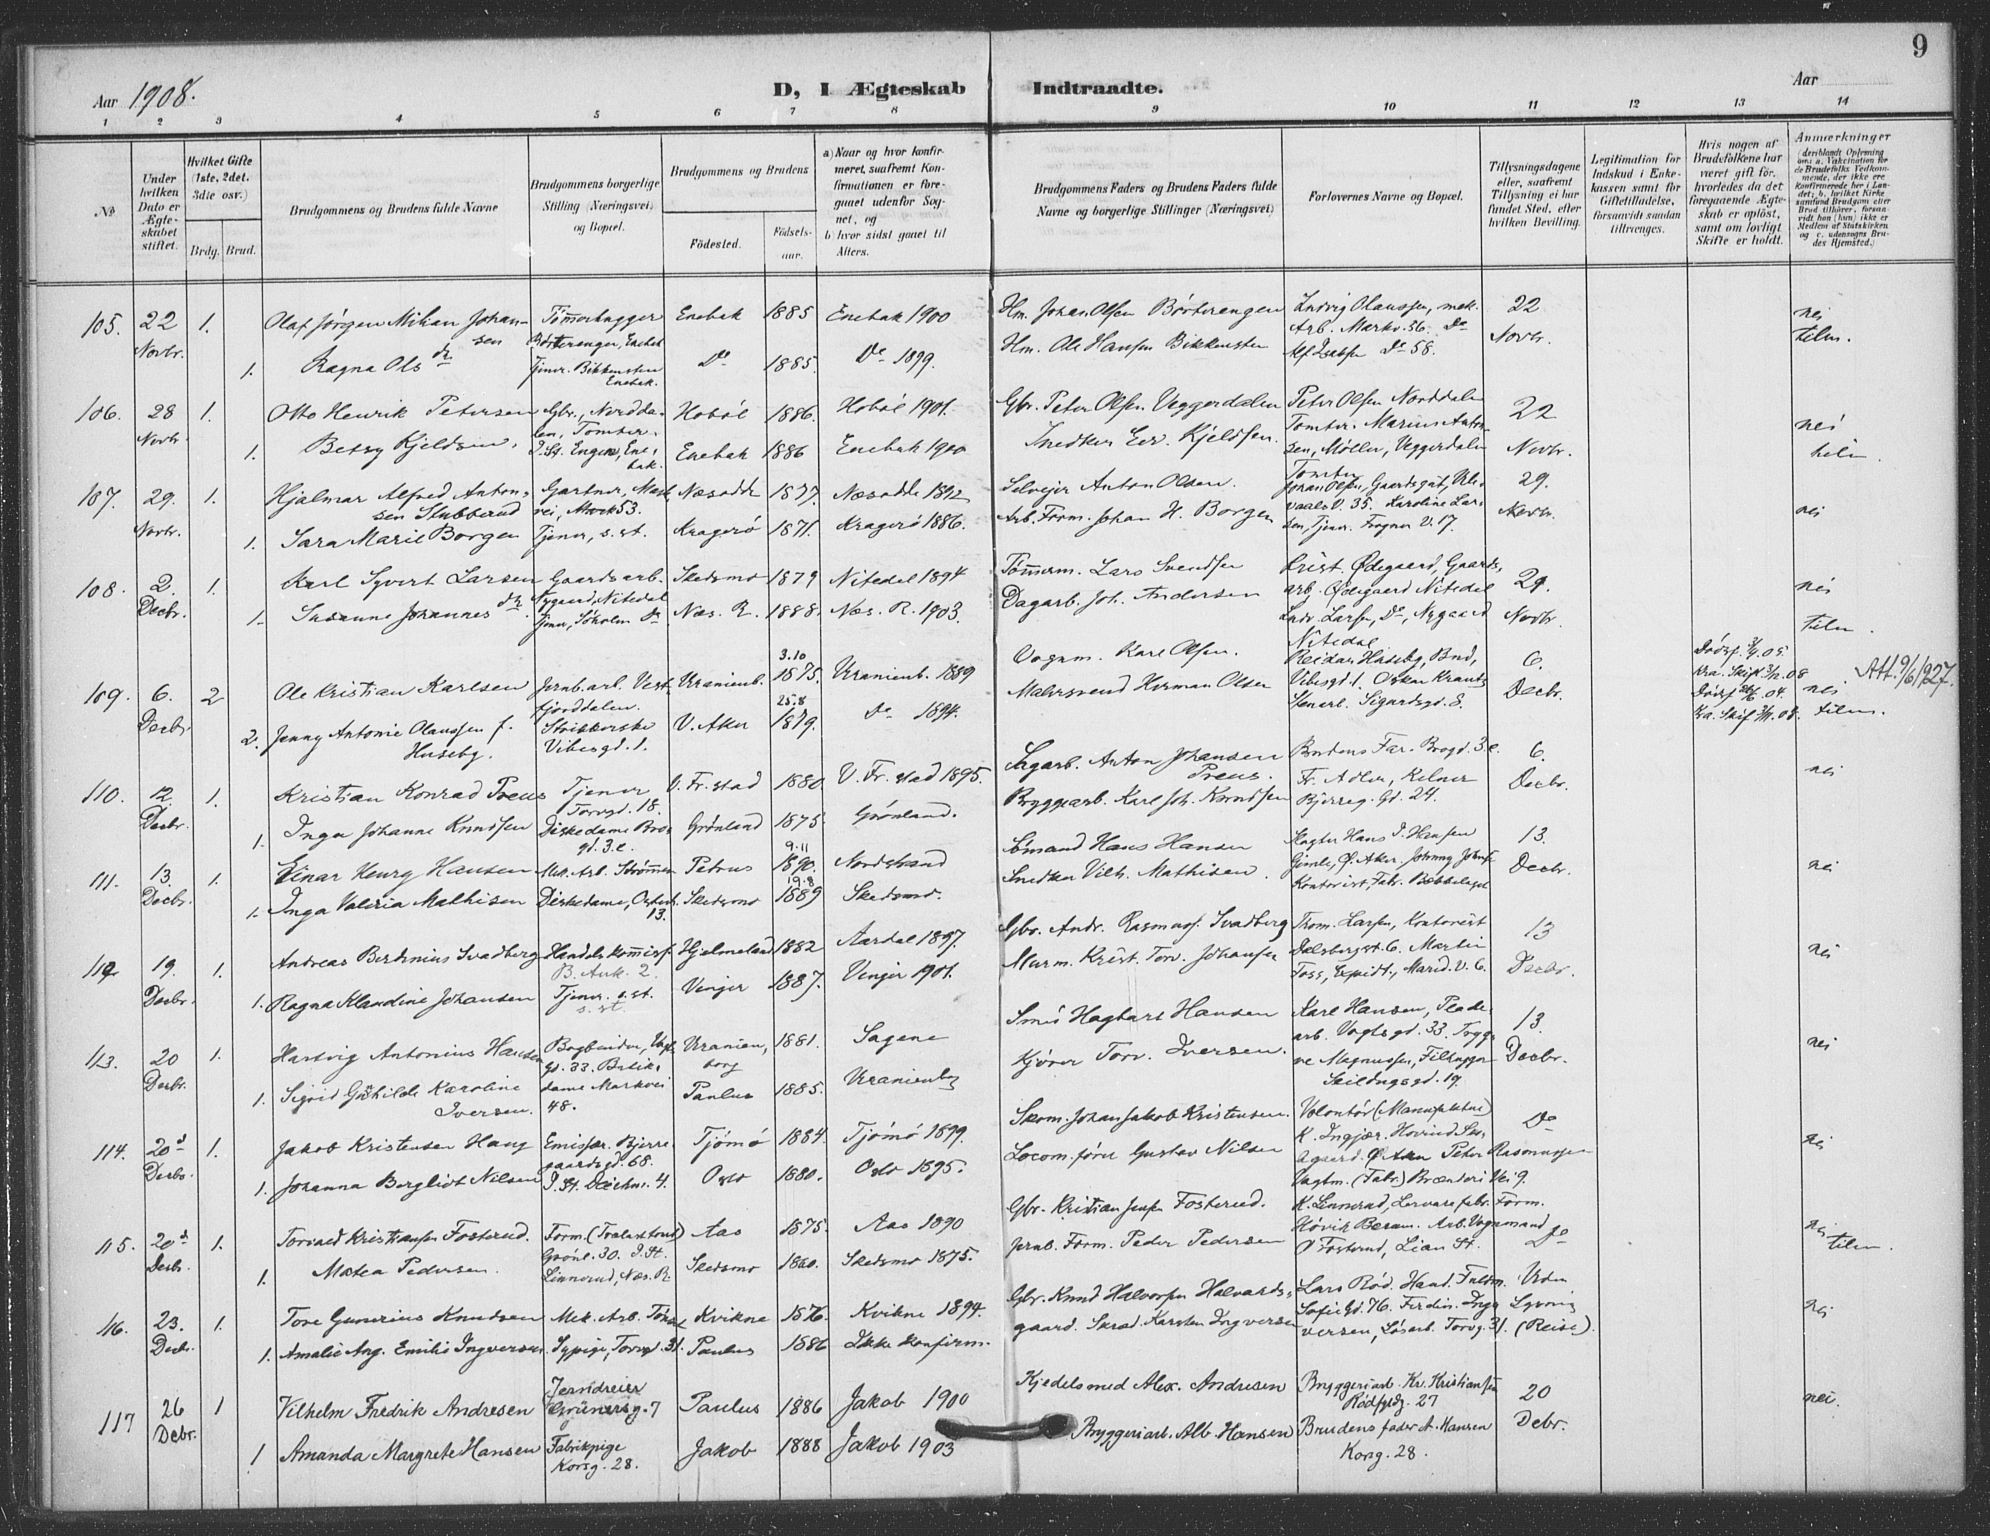 9
Aar 1908. D, I Ægteskab Indtraadte. Aar
1 2 3 4 5 6 7 8 9 10 11 12 13 14
№
Under hvilken Dato er Ægteskabet stiftet.
Hvilket Gifte (1ste, 2det, 3die osv.)
Brdg. Brud.
Brudgommens og Brudens fulde Navne
Brudgommens borgerlige Stilling (Næringsvei) og Bopæl.
Brudgommens og Brudens
Fødested. Fødselsaar.
a) Naar og hvor konfirmeret, saafremt Konfirmationen er foregaaet udenfor Sognet, og
b) hvor sidst gaaet til Alters.
Brudgommens Faders og Brudens Faders fulde Navne og borgerlige Stillinger (Næringsvei)
Forlovernes Navne og Bopæl.
Tillysningsdagene eller, saafremt Tillysning ei har fundet Sted, efter hvilken Bevilling.
Legitimation for Indskud i Enkekassen samt for Giftetilladelse, forsaavidt saadan tiltrænges.
Hvis nogen af Brudefolkene har været gift før, hvorledes da det foregaaende Ægteskab er opløst, samt om lovligt Skifte er holdt.
Anmærkninger
(deriblandt Oplysning om: a. Vakcination for de Brudefolks Vedkommende, der ikke ere Konfirmerede her i Landet; b. hvilket Kirkesamfund Brudgom eller Brud tilhører, forsaavidt han (hun) ikke er Medlem af Statskirken og c. udensogns Brudes Hjemsted.)
105. 22 Novbr. 1. Olaf Jørgen Mikan Johansen Tømmerhugger Børterangen, Enebak Enebak 1885 Enebak 1900 Hm. Johan Olsen Børterangen Ludvig Olaussen, mek. Arb. Markv. 56. Do 22 Novbr. nei
1. Ragna Olsdr Tjener. Bikkensten Enebak. Do 1885. Do 1899. Hm. Ole Hansen Bikkensten Alf Isaksen Do 58. tilm.
106. 28 Novbr 1. Otto Henrik Petersen Gbr., Norddalen, Tomter. Hobøl 1886. Hobøl 1901. Gbr. Peter Olsen Veggerdalen Peter Olsen Norddalen Tomter. Marius Antonsen, Møller, Veggerdalen Tomter 22 Novbr. nei
1. Betsy Kjeldsen. I. St. Engen, Enebak. Enebak 1886 Enebak 1900 Snedker Edv. Kjeldsen. tilm.
107. 29. Novbr. 1. Hjalmar Alfred Antonsen Stubberud Gartner, Markvei, Mark 53. Næsodde 1877. Næsodde 1892 Selveier Anton Olsen. Johan Olsen, Gaardsgut, Ullevaals V. 35. Karoline Larsen, Tjener. Frogner V. 17. 29. Novbr. nei
1. Sara Marie Borgen Tjener, s. st. Kragerø 1871. Kragerø 1886. Arb. Form. Johan H. Borgen
108. 2. Decbr. 1. Karl Syvert Larsen Gaardsarb. Nygaard, Nitedal Skedsmo 1879 Nitedal 1894 Tømmerm. Lars Svendsen Krist. Ødegaard, Gaardsarb. Ødegaard Nitedal 29. Novbr. nei
1. Susanne Johannesdr. Tjener, Søholm Do Næs. R. 1888. Næs. R. 1903. Dagarb. Joh. Andersen Ludv. Larsen, Do, Nygaard Nitedal tilm.
109. 6. Decbr 2 Ole Kristian Karlsen Jernb.arb. Vestfjorddalen. Uranienb. 3.10 1875. Uranienb. 1889 Vognm. Karl Olsen. Reidar Huseby, Bud, Vibesgd. 1. Oskar Krantz Stenarb. Sigurdsgd. 8. 6. Decbr. nei Att. 9/6 1927.
2. Jenny Antonie Olaussen f. Huseby. Strikkerske Vibesgd. 1. V. Aker 25.8 1879. Do 1894. Malersvend Herman Olsen tilm.
110. 12. Decbr. 1. Kristian Konrad Preus Tjener Torvgd. 18. V. Fr.stad 1880. V. Fr.stad 1895. Sagarb. Anton Johansen Preus. Brudens Far. Brogd. 3.e. 6. Decbr. nei
1. Inga Johanne Knudsen Diskedame Brogd. 3.e. Grønland 1875. Grønland. Bryggearb. Karl Joh. Knudsen Fr. Adler, Kelner Bjerreg. Gd. 24.
111. 13. Decbr. 1. Einar Henry Hansen Mek. Arb. Strømmen Petrus 9.11 1890. Nordstrand Sømand Hans Hansen Slagter Hans I. Hansen Gimle, Ø. Aker. Johnny Johnsen Kontorist, Fabr. 13. Decbr. nei
1. Inga Valeria Mathisen Diskedame, 13. Skedsmo 19.8 1889 Skedsmo. Snedker Vilh. Mathisen.
112. 19. Decbr. 1. Andreas Berdinius Svadberg Handelskommisj. B. Ank. 2. Hjelmeland 1882 Aardal 1897. Gbr. Andr. Rasmus. Svadberg Trom. Larsen, Kontorist Dælsbergst. 6. Martin Foss, Expidt., Marid. V. 6. 13 Decbr. nei
1. Ragna Klaudine Johansen Tjener. s. st. Vinger 1887. Vinger 1901. Murm. Krist. Torv. Johansen
113. 20 Decbr. 1. Hartvig Antonius Hansen Bogbinder, Vogtsgd. 33. Uranienborg 1881. Sagene Smed Hagbart Hansen Karl Hansen, Pladearb. Vogtsgd. 33. Trygve Magnussen, Filhugger Skildngsgd. 19. 13. Decbr. nei
1. Sigrid Gunhilde Karoline Iversen. Butikdame Markvei 48. Paulus 1885. Uranienborg Kjører Torv. Iversen.
114. 20d Decbr. 1. Jakob Kristensen Haug Emisær. Bjerregaardsgd. 68. Tjømø 1884. Tjømø 1899. Skom. Johan Jakob Kristensen. Volontør (Manufaktur) K. Ingjær. Hovind Ø. Aker Peter Rasmussen Vagtm. (Fabr.) Brænderi Vei 9. Do nei
1. Johanna Bergliot Nilsen I. St. Deichm. 4. Oslo 1880. Oslo 1895. Locom.fører Gustav Nilsen
115. 20d Decbr. 1. Torvald Kristiansen Fosterud. Form. (Tralastomt) Grønl. 30. I. St. Aas 1875. Aas 1890 Gbr. Kristian Jensen Fosterud. K. Linnerud, Lervarefabr. Form. Høvik Bærum. Arb. Vognmand O Fosterud, Lian St. Do nei
1. Matea Pedersen. Linnerud, Næs. R. Skedsmo 1860. Skedsmo 1875. Jernb. Form. Peder Pedersen tilm.
116. 23. Decbr. 1. Tore Gunerius Knudsen Mek. Arb. Kvikne 1876. Kvikne 1894. Gbr. Knud Halvorsen Halvardsgaard. Lars Rød. Hand. Fuldm. Sofie Gd. 76. Ferdin. Ingversen, Løsarb. Torvg. 31. Uden Lysning (Reise). nei
1. Amalie Aug. Emilie Ingversen. Sypige, Torvgd. 31. Paulus 1886 Ikke konfirm. Skræd. Karsten Ingversen
117 26 Decbr. 1 Vilhelm Fredrik Andresen Jerndreier Grünersg. 7 Paulus 1886 Jakob 1900 Kjedelsmed Alex. Andresen Bryggeriarb. Kr. Kristiansen Rødfyldg. 27 20 Debr. nei.
1 Amanda Margrete Hansen Fabrikpige Korsg. 28. Jakob 1888 Jakob 1903 Bryggeriarb. Alb. Hansen Brudens fader A. Hansen Korsg. 28.